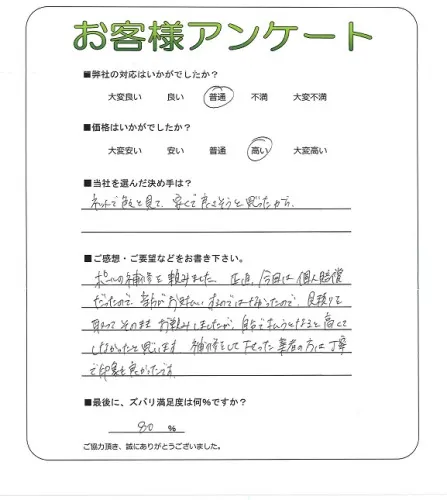 お客様アンケート
■弊社の対応はいかがでしたか？
大変良い 良い 普通 不満 大変不満
■価格はいかがでしたか？
大変安い 安い 普通 高い 大変高い
■当社を選んだ決め手は？
ネットで色々見て、安くて良さそうと思ったから。
■ご感想・ご要望などをお書き下さい。
ポールの補修を頼みました。正直、今回は個人賠償
だったので、自分がお支払いするのではなかったので、見積りを
取ってそのままお願いしましたが、自分で払うとなると高くて
しなかったと思います 補修をして下さった業者の方は丁寧
で印象も良かったです。
■最後に、ズバリ満足度は何％ですか？
80 ％
ご協力頂き、誠にありがとうございました。